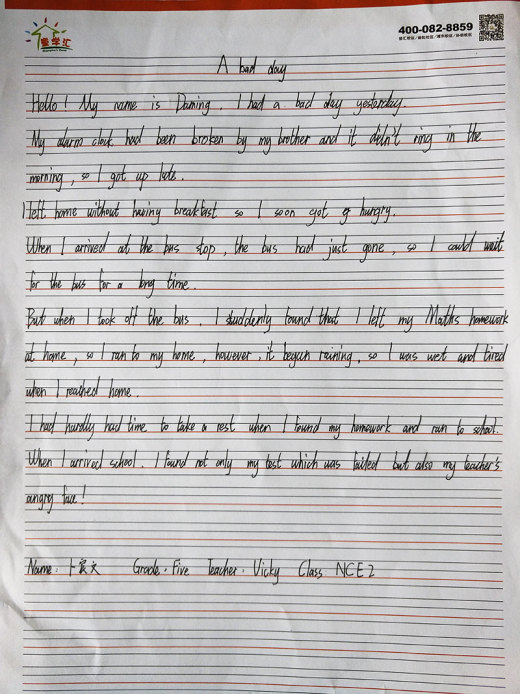 爱学汇
400-082-8859
A bad day
Hello! My name is Daming. I had a bad day yesterday.
My alarm clock had been broken by my brother and it didn't ring in the
morning, so I got up late.
I left home without having breakfast so I soon got hungry.
When I arrived at the bus stop, the bus had just gone, so I could wait
for the bus for a long time.
But when I took off the bus, I suddenly found that I left my Maths homework
at home, so I ran to my home, however, it began raining, so I was wet and tired
when I reached home.
I had hardly had time to take a rest when I found my homework and ran to school.
When I arrived school, I found not only my test which was failed but also my teacher's
angry face!
Name: 卜宸文 Grade: Five Teacher: Vicky Class NCE 2